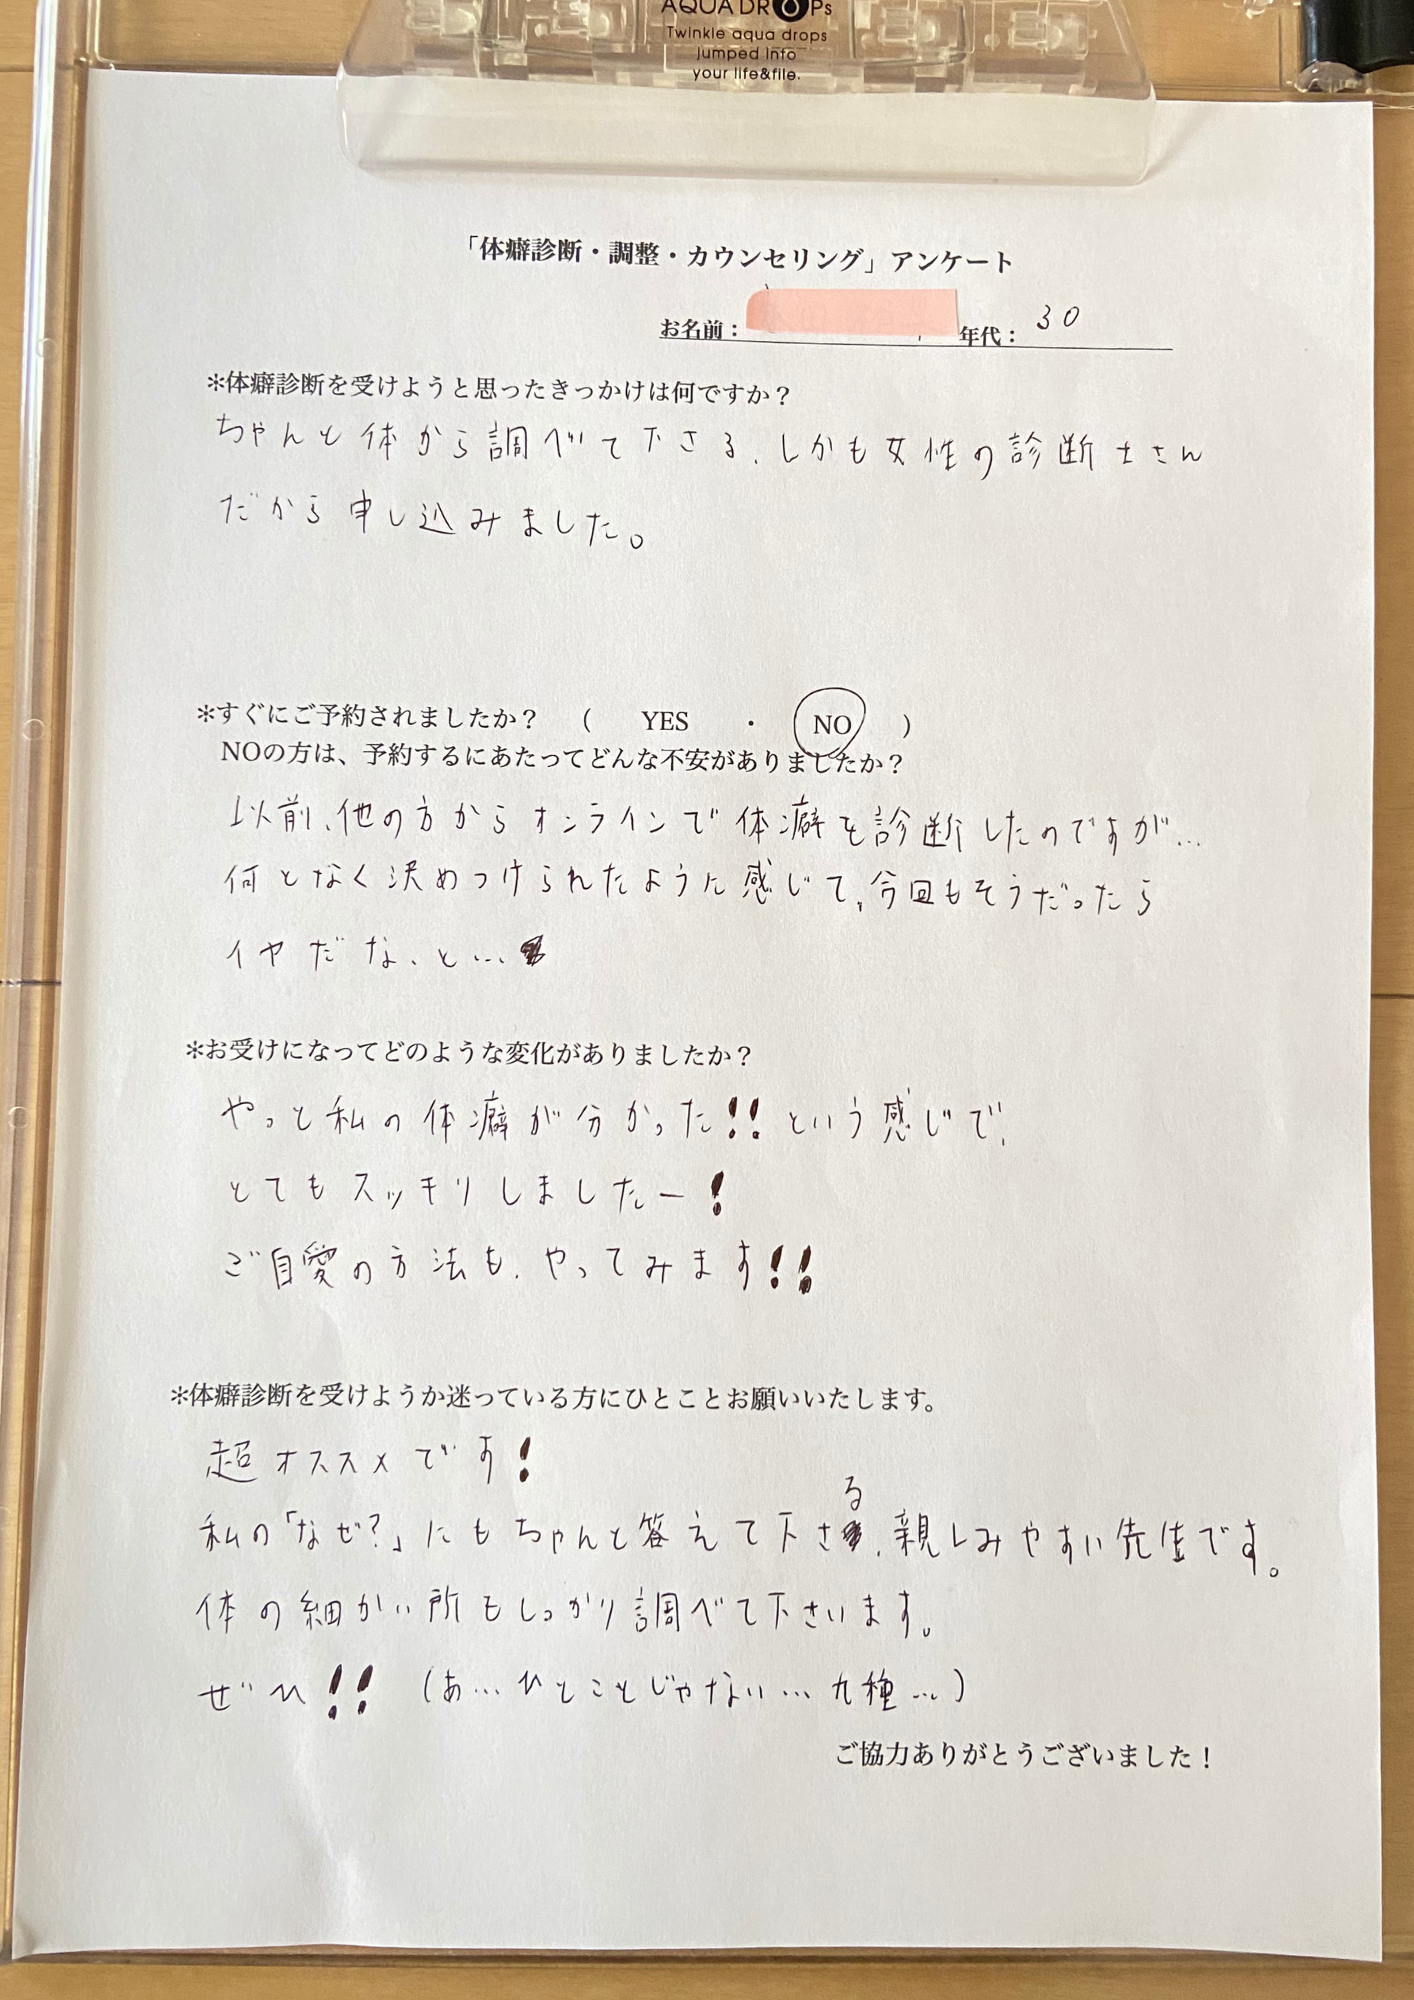 AQUA DROPs
Twinkle aqua drops
jumped into
your life&file.
「体癖診断・調整・カウンセリング」アンケート
お名前： 年代： 30
＊体癖診断を受けようと思ったきっかけは何ですか？
ちゃんと体から調べて下さる、しかも女性の診断士さん
だから申し込みました。
＊すぐにご予約されましたか？ （ YES ・ NO ）
NOの方は、予約するにあたってどんな不安がありましたか？
以前、他の方からオンラインで体癖を診断したのですが…
何となく決めつけられたように感じて、今回もそうだったら
イヤだな、と…
＊お受けになってどのような変化がありましたか？
やっと私の体癖が分かった!!という感じで、
とてもスッキリしましたー！
ご自愛の方法も、やってみます!!
＊体癖診断を受けようか迷っている方にひとことお願いいたします。
超オススメです！
私の「なぜ？」にもちゃんと答えて下さる、親しみやすい先生です。
体の細かい所もしっかり調べて下さいます。
ぜひ!! （あ…ひとことじゃない…九種…）
ご協力ありがとうございました！